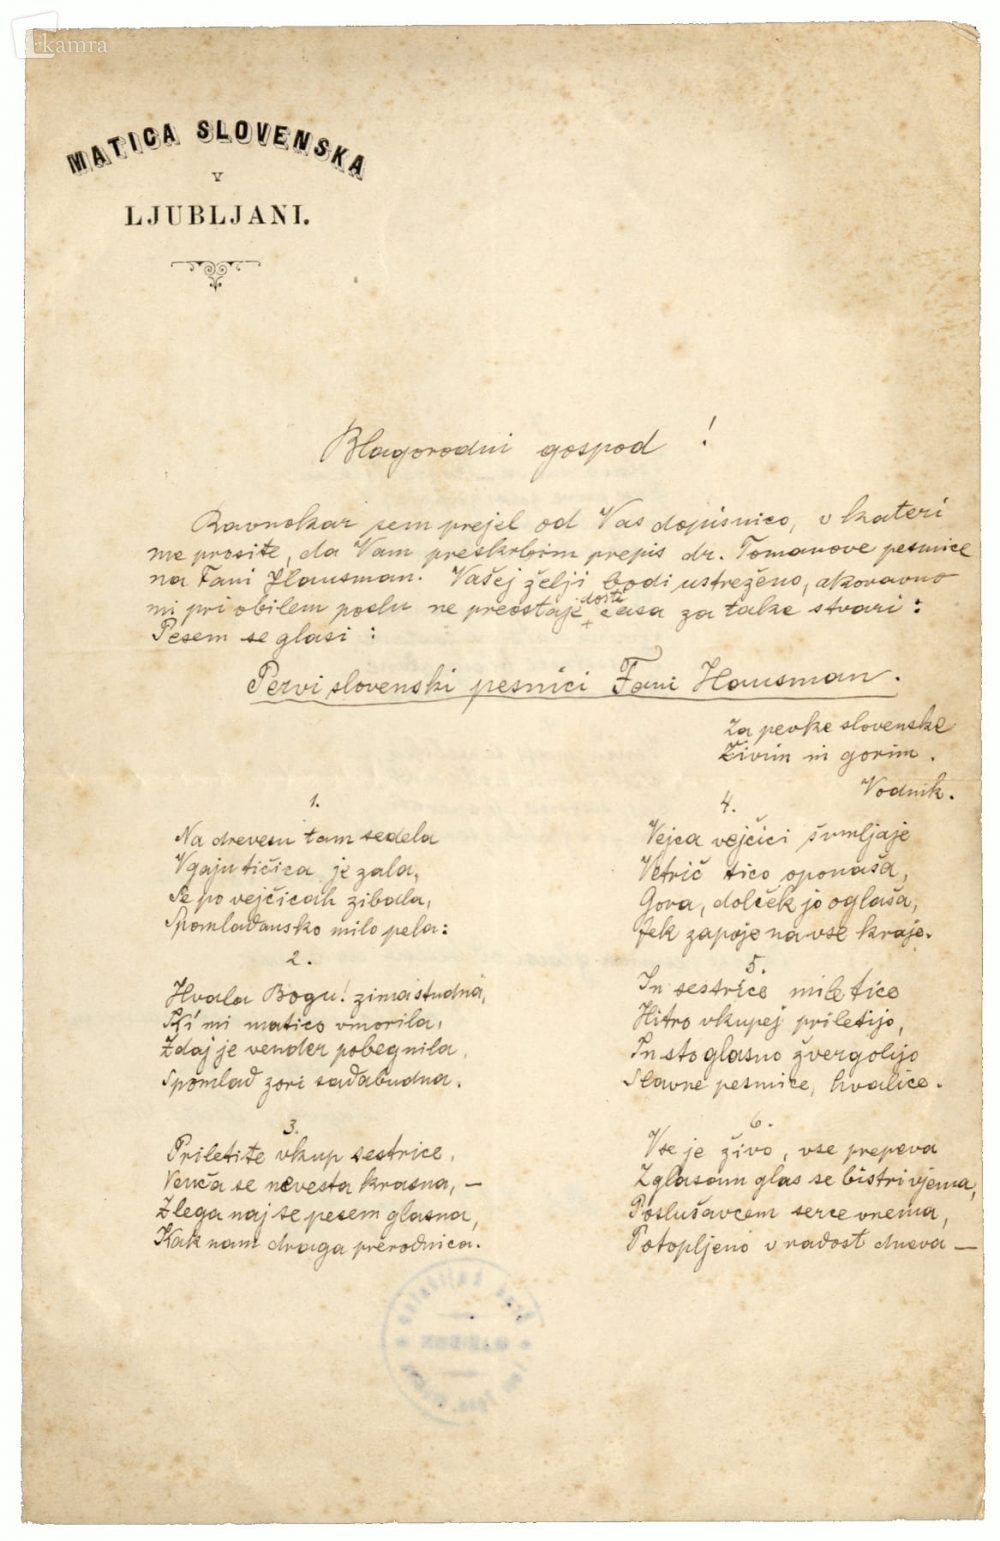 kamra
MATICA SLOVENSKA
V
LJUBLJANI.
Blagorodni gospod !
Ravnokar sem prejel od Vas dopisnico, v kateri
me prosite, da Vam preskrbim prepis dr. Tomanove pesmice
na Fani Hausman. Vašej želji bodi ustreženo, akoravno
mi pri obilem poslu ne preostaje dosti časa za take stvari:
Pesem se glasi :
Pervi slovenski pesnici Fani Hausman.
Za pevke slovenske
Živim in gorim.
Vodnik.
1.
Na drevesu tam sedela
V gaju tičica je zala,
Se po vejčicah zibala,
Spomladansko milo pela:
2.
Hvala Bogu! zima studna,
Ki mi matico vmorila,
Zdaj je vender pobegnila,
Spomlad zori sada budna.
3.
Priletite vkup sestrice,
Venča se nevesta krasna, —
Zlega naj se pesem glasna,
Kak nam draga prerodnica.
4.
Vejca vejčici šumljaje
Vetrič tico oponaša,
Gora, dolček jo oglaša,
Jek zapoje na vse kraje.
5.
In sestrice mile tice
Hitro vkupej priletijo,
In stoglasno žvergolijo
Slavne pesmice, hvalice.
6.
Vse je živo, vse prepeva
Z glasom glas se bistri vjema,
Poslušavcem serce vnema,
Potopljeno v radost dneva —